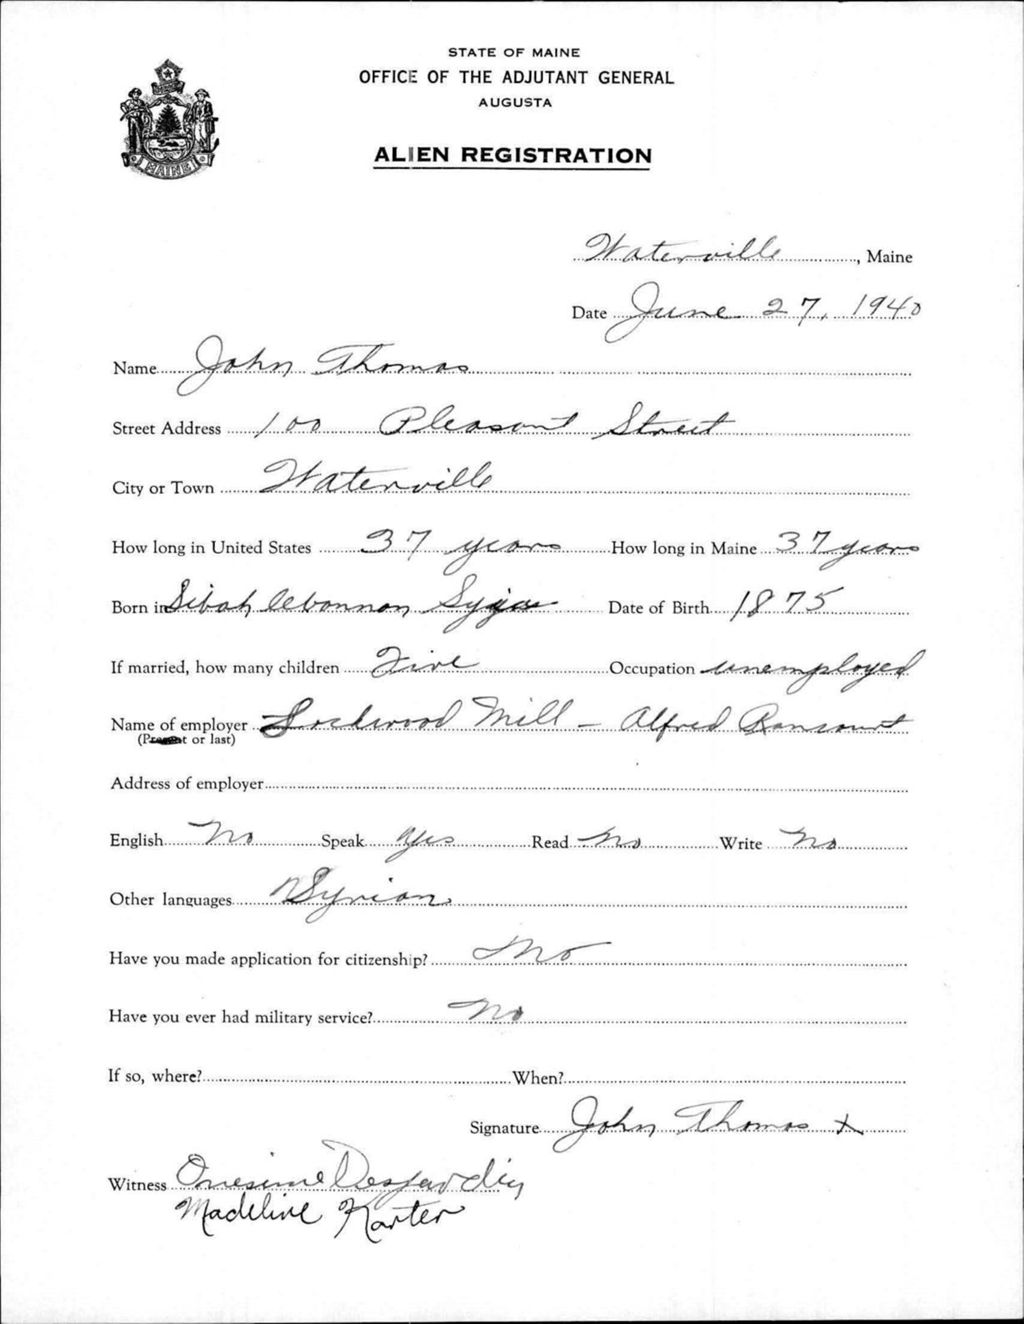 STATE OF MAINE
OFFICE OF THE ADJUTANT GENERAL
AUGUSTA
ALIEN REGISTRATION
MAINE
Waterville, Maine
Date June 27, 1940
Name John Thomas
Street Address 100 Pleasant Street
City or Town Waterville
How long in United States 37 years How long in Maine 37 years
Born in Sibah Lebannon Date of Birth 1875
If married, how many children Five Occupation unemployed
Name of employer Lockwood Mill - Alfred Rancourt
(Present or last)
Address of employer
English No Speak Yes Read No Write No
Other languages Syrian
Have you made application for citizenship? No
Have you ever had military service? No
If so, where? When?
Signature John Thomas X
Witness Onesime Desjardins
Madeline Karter